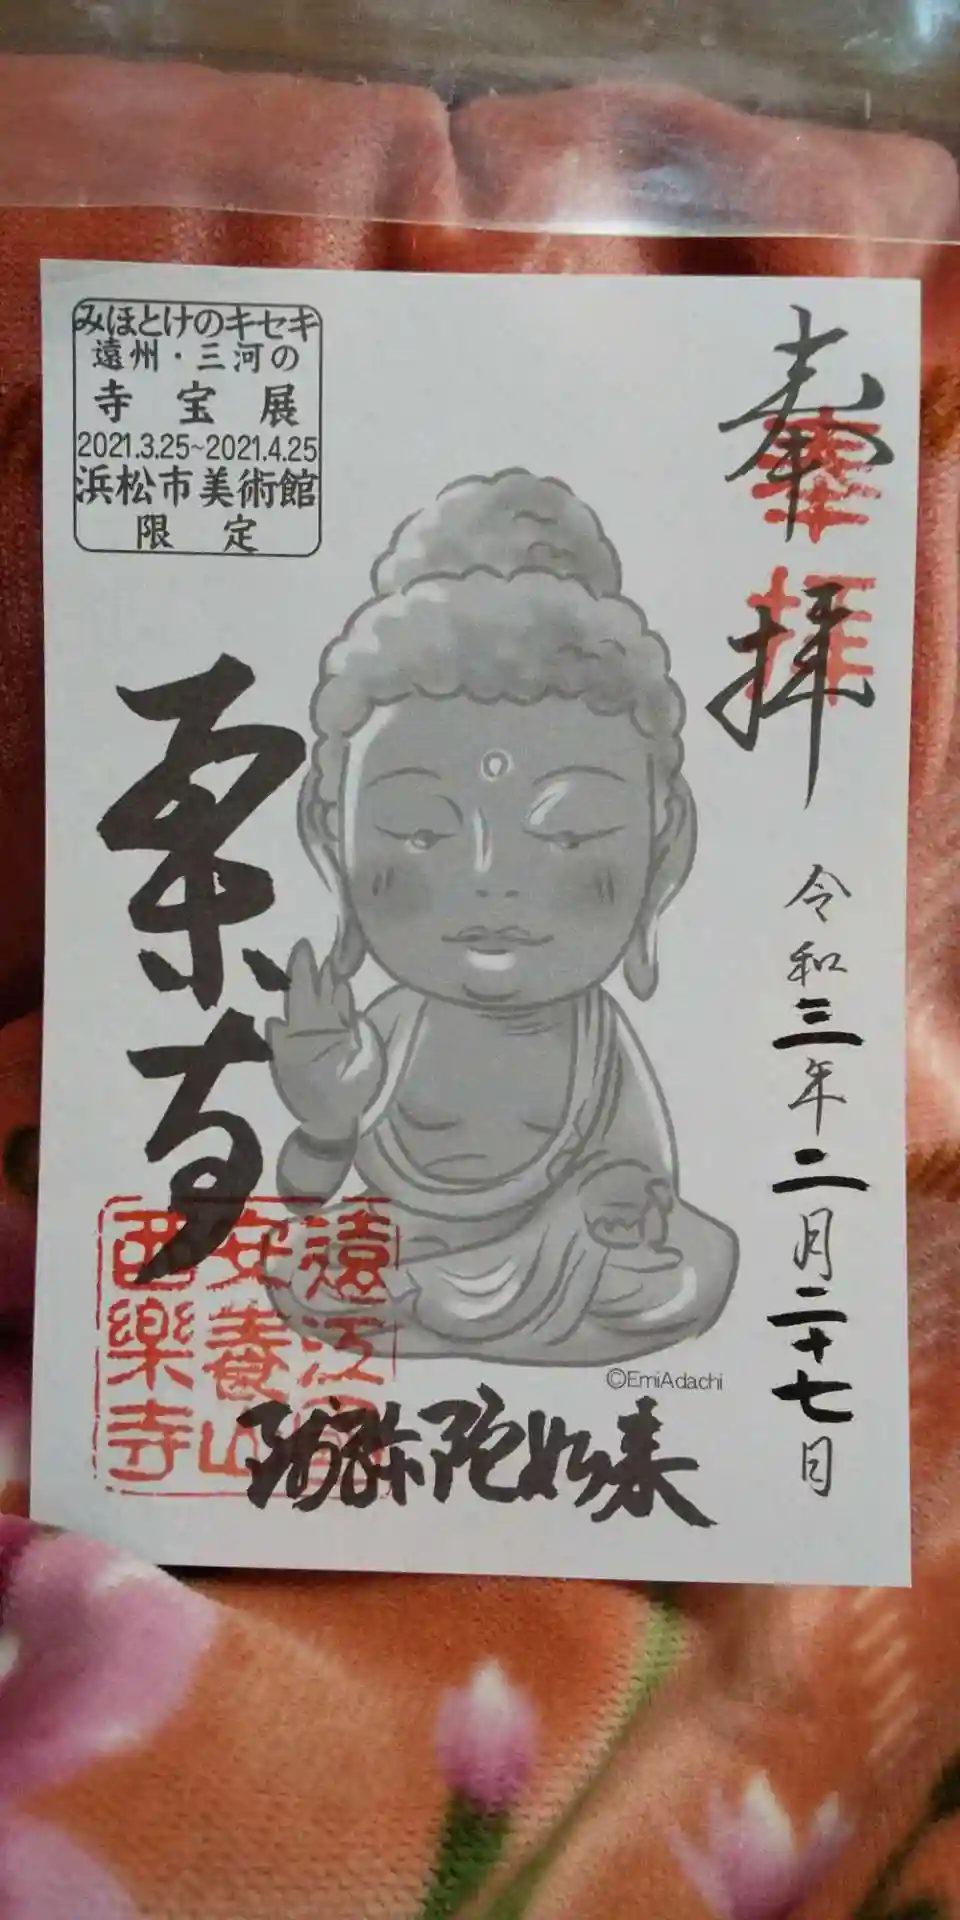 みほとけのキセキ
遠州・三河の
寺宝展
2021.3.25~2021.4.25
浜松市美術館
限定
奉拝
奉拝
令和三年二月二十七日
西楽寺
遠江國
安養山
西樂寺
阿弥陀如来
©EmiAdachi